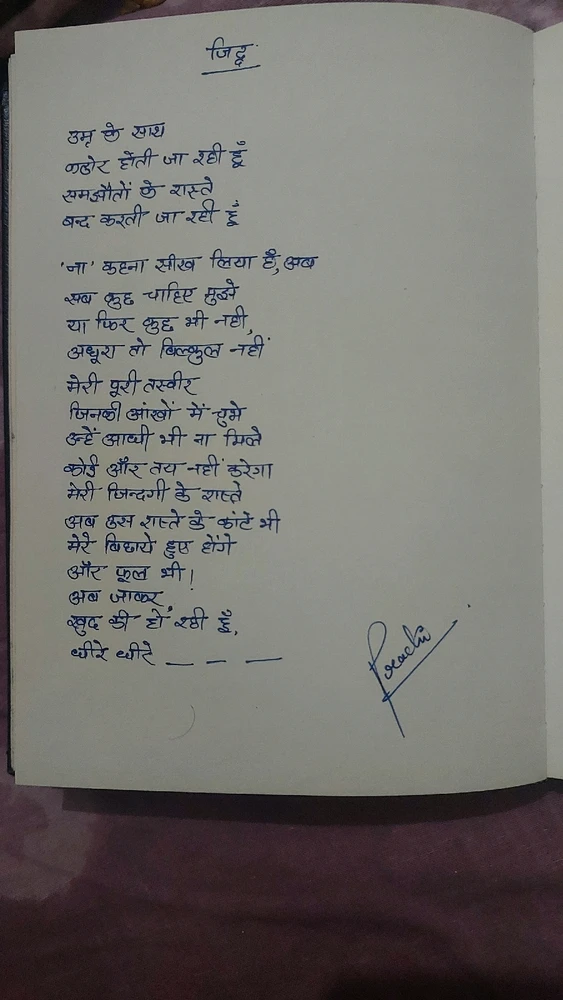 जिद्द
उम्र के साथ
कठोर होती जा रही हूँ
समझौतों के रास्ते
बन्द करती जा रही हूँ
'ना' कहना सीख लिया है, अब
सब कुछ चाहिए मुझे
या फिर कुछ भी नही,
अधूरा तो बिल्कुल नहीं
मेरी पूरी तस्वीर
जिनकी आंखों में चुभे
उन्हें आधी भी ना मिले
कोई और तय नहीं करेगा
मेरी जिन्दगी के रास्ते
अब उस रास्ते के कांटे भी
मेरे बिछाये हुए होंगे
और फूल भी!
अब जाकर
खुद की हो रही हूँ,
धीरे धीरे _ _ _
Prachi